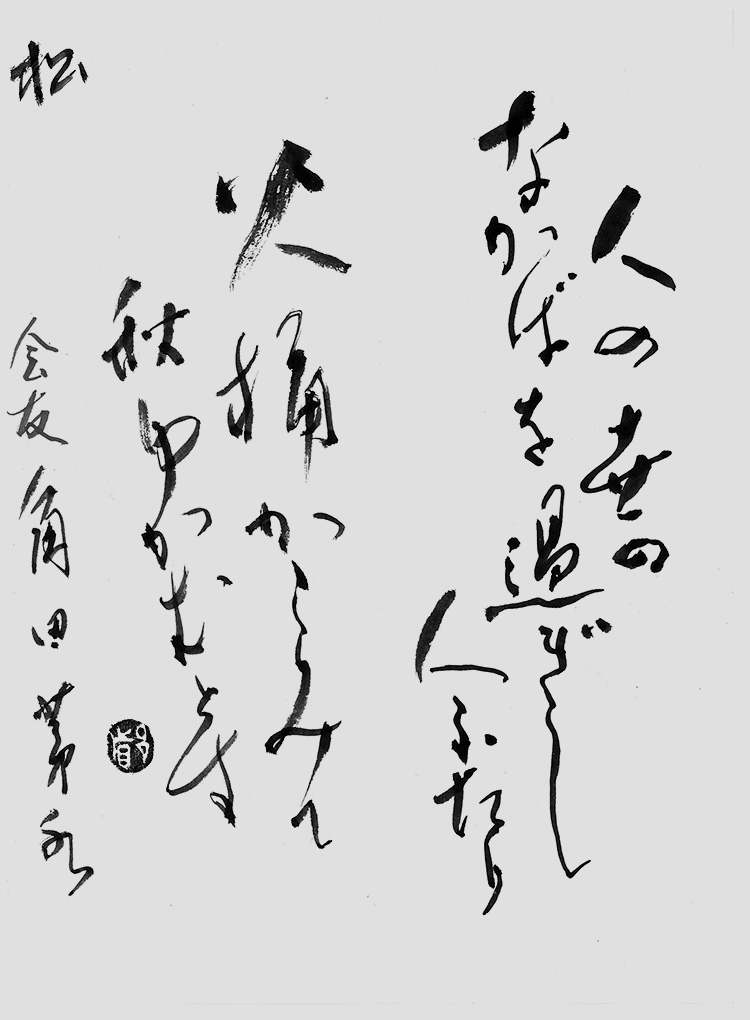 人の世の
なかばを過ぎし
人ふたり
火桶かこみて
秋ゆかむとす
松 会友 角田